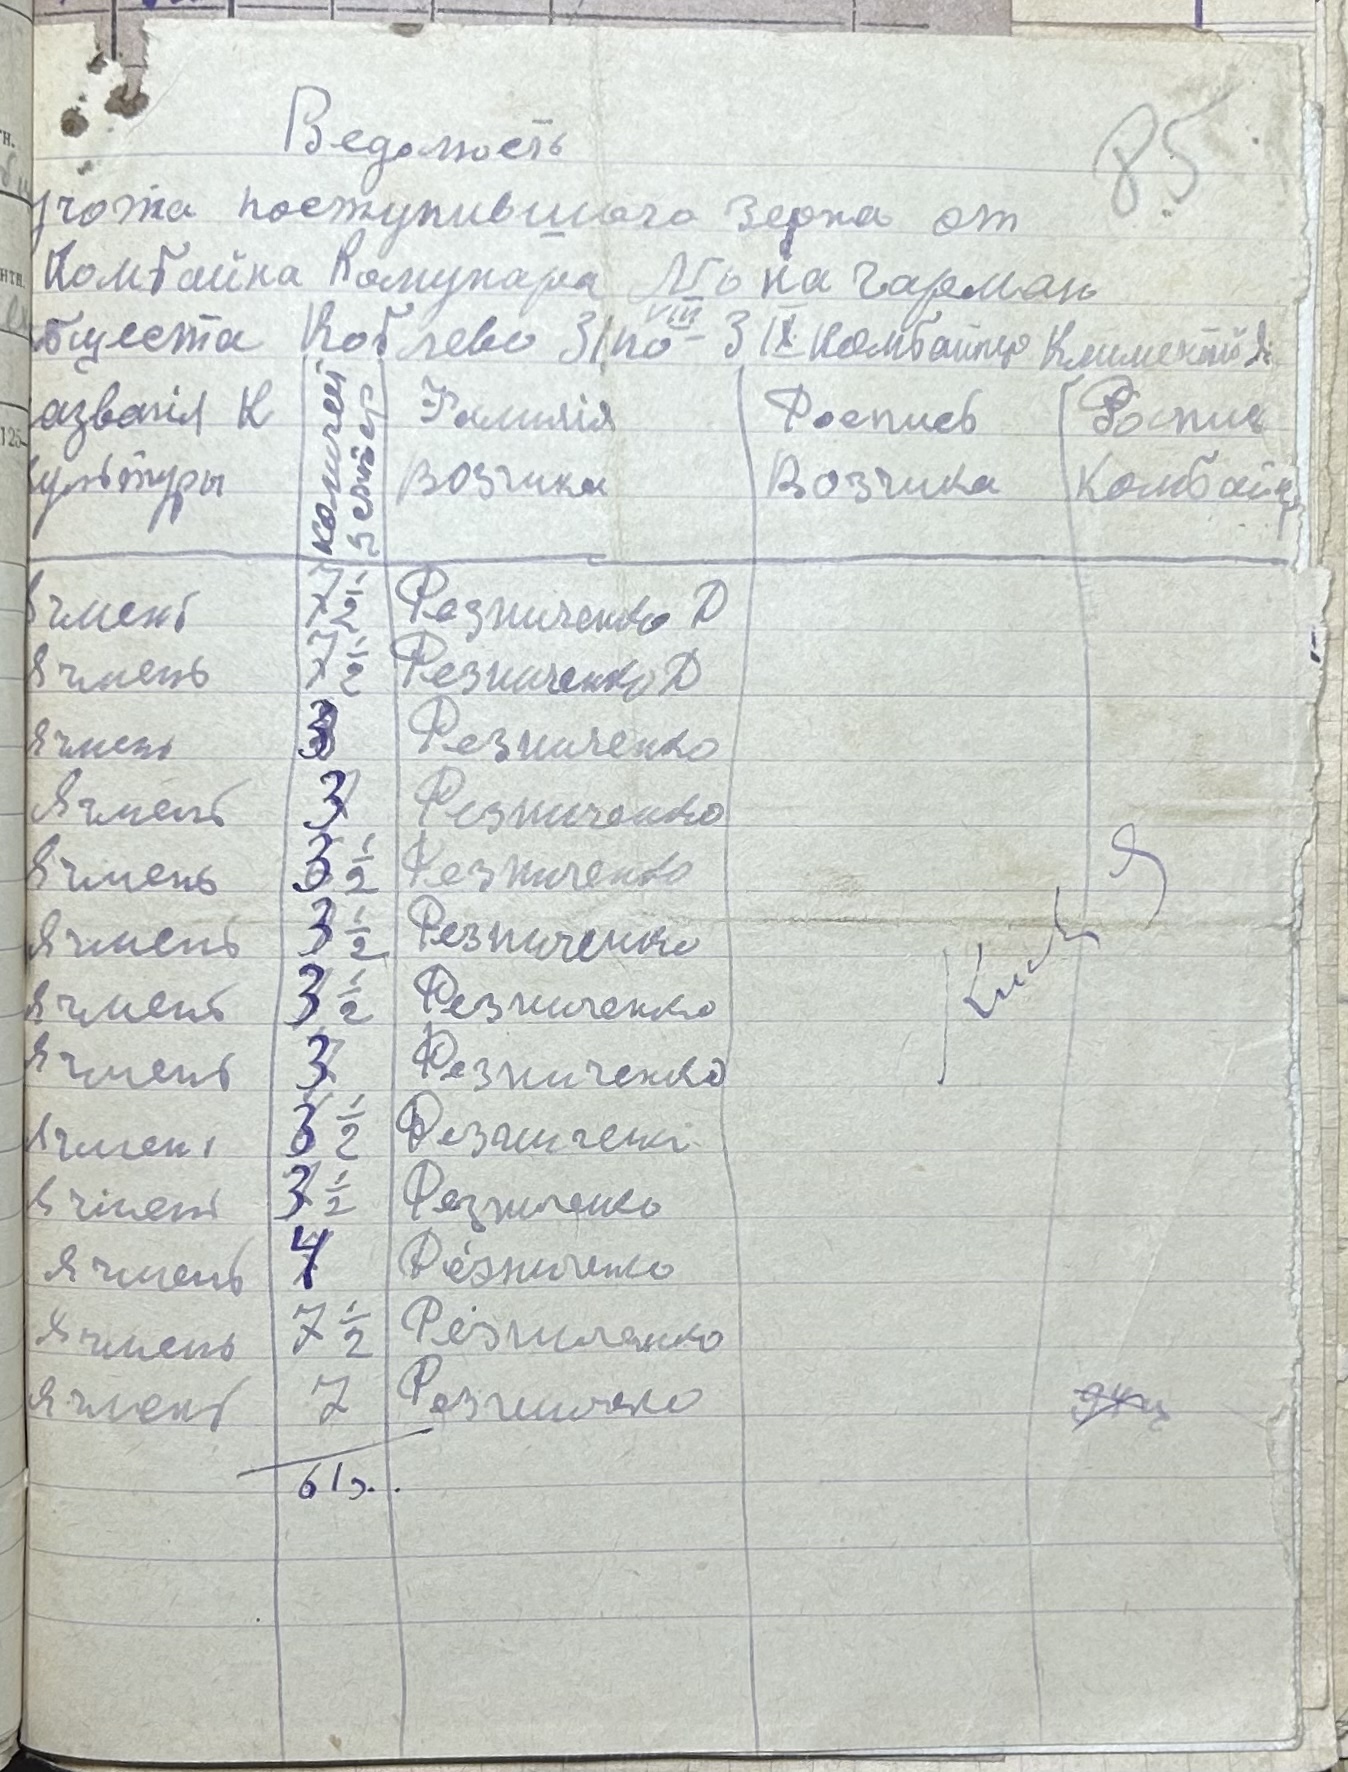 85
Ведомость
учота поступившого зерна от
Комбайна Комунара № на гарман
бщеста Коблево 31 VIII по - 3 IX Комбайнер Климентий Я
азванія К
ультуры
Количест
Фамилія
возчика
Роспись
Возчика
Роспись
Комбайнер
Ячмень 7 1/2 Резниченко Д
Ячмень 7 1/2 Резниченко Д
Ячмень 3 Резниченко
Ячмень 3 Резниченко
Ячмень 3 1/2 Резниченко
Ячмень 3 1/2 Резниченко
Ячмень 3 1/2 Резниченко
Ячмень 3 Резниченко
Ячмень 3 1/2 Резниченко
Ячмень 3 1/2 Резниченко
Ячмень 4 Резниченко
Ячмень 7 1/2 Резниченко
Ячмень 7 Резниченко
61